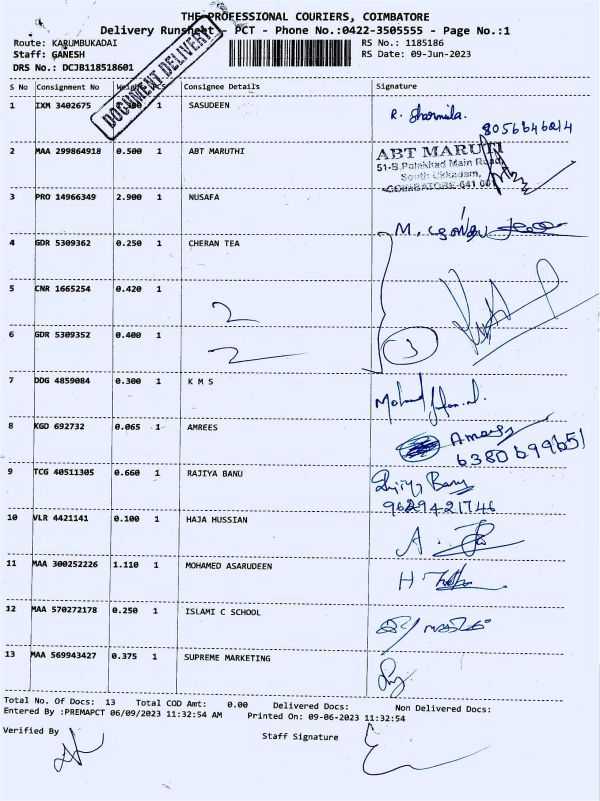 THE PROFESSIONAL COURIERS, COIMBATORE
Delivery Runsheet - PCT - Phone No.:0422-3505555 - Page No.:1
Route: KARUMBUKADAI RS No.: 1185186
Staff: GANESH RS Date: 09-Jun-2023
DRS No.: DCJB118518601
DOCUMENT DELIVERY
S No Consignment No Weight PCS Consignee Details Signature
1 IXM 3402675 1 SASUDEEN R. Sharmila.
8056646214
2 MAA 299864918 0.500 1 ABT MARUTHI ABT MARUTI
51-B, Palakkad Main Road,
South Ukkadam,
COIMBATORE-641 001
3 PRO 14966349 2.900 1 NUSAFA M.
4 GDR 5309362 0.250 1 CHERAN TEA
5 CNR 1665254 0.420 1
6 GDR 5309352 0.400 1 3
7 DDG 4859084 0.300 1 K M S
8 KGD 692732 0.065 1 AMREES Amees
6380699651
9 TCG 40511305 0.660 1 RAJIYA BANU Rajiya Banu
9629421746
10 VLR 4421141 0.100 1 HAJA HUSSIAN A.
11 MAA 300252226 1.110 1 MOHAMED ASARUDEEN H.
12 MAA 570272178 0.250 1 ISLAMI C SCHOOL
13 MAA 569943427 0.375 1 SUPREME MARKETING
Total No. Of Docs: 13 Total COD Amt: 0.00 Delivered Docs: Non Delivered Docs:
Entered By :PREMAPCT 06/09/2023 11:32:54 AM Printed On: 09-06-2023 11:32:54
Verified By Staff Signature